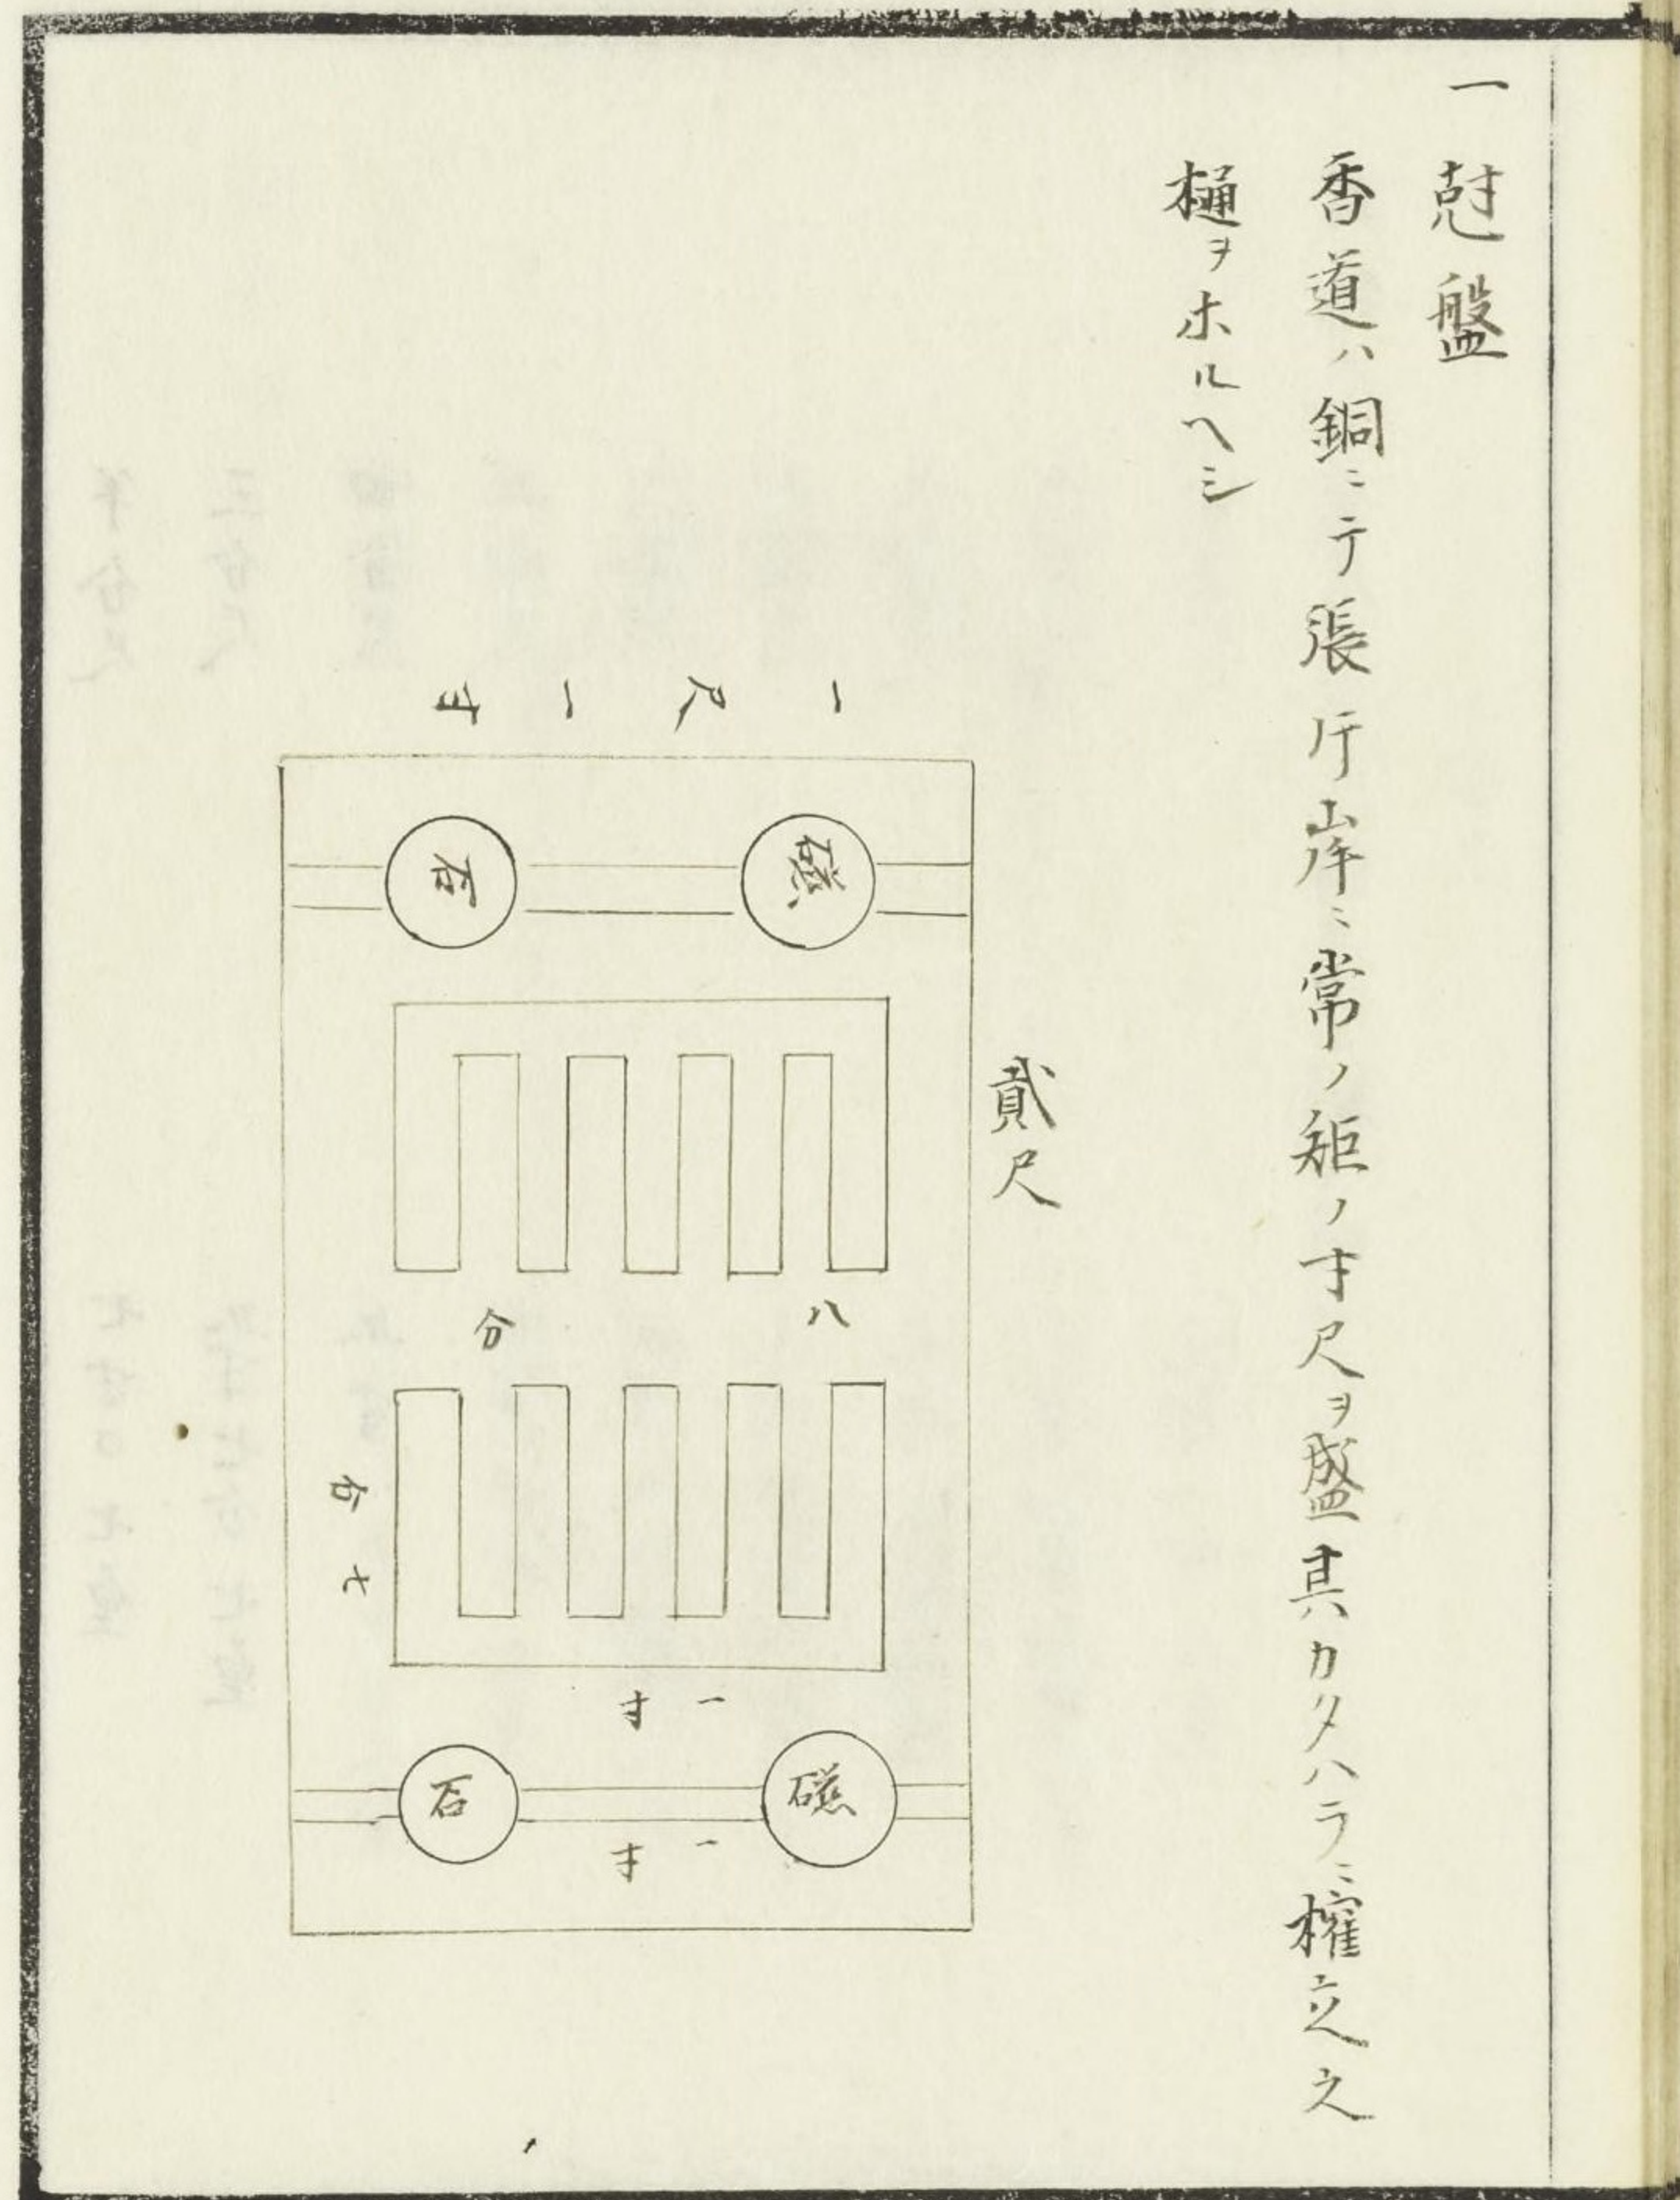 一 尅盤
香道ハ銅ニテ張片岸ニ常ノ矩ノ寸尺ヲ盛其カタハラニ榷立之
樋ヲホルヘシ
一尺一寸
貳尺
磁 石
八分
七分
一寸
磁 石
一寸